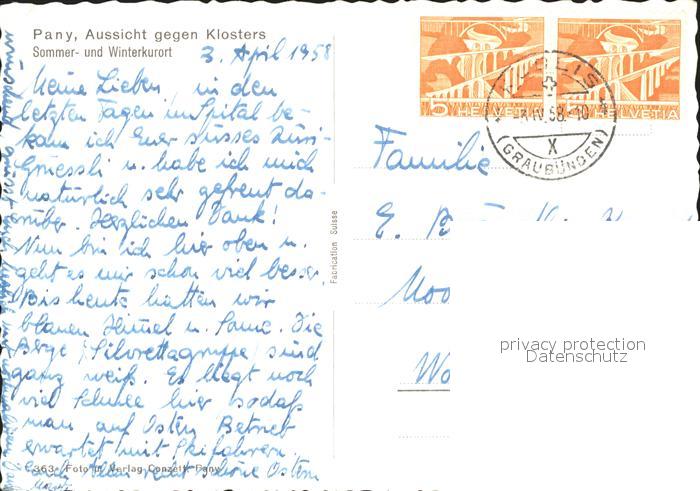 Pany, Aussicht gegen Klosters
Sommer- und Winterkurort
3. April 1958
Meine Lieben, in den
letzten Tagen im Spital be-
kam ich Euer süsses Züri-
Griessli u. habe ich mich
natürlich sehr gefreut da-
rüber. Herzlichen Dank!
Nun bin ich hier oben u.
geht es mir schon viel besser.
Bis heute hatten wir
blauen Himmel u. Sonne. Die
Berge (Silvrettagruppe) sind
ganz weiß. Es liegt noch
viel Schnee hier sodaß
man auf Ostern Betrieb
erwartet mit Skifahrern.
Euch allen recht schöne Ostern
363 Foto u. Verlag Conzett, Pany
Fabrication Suisse
5 HELVETIA
HELVETIA
3.IV.58-10
X
(GRAUBÜNDEN)
Familie
E. B
Moo
Wo
privacy protection
Datenschutz